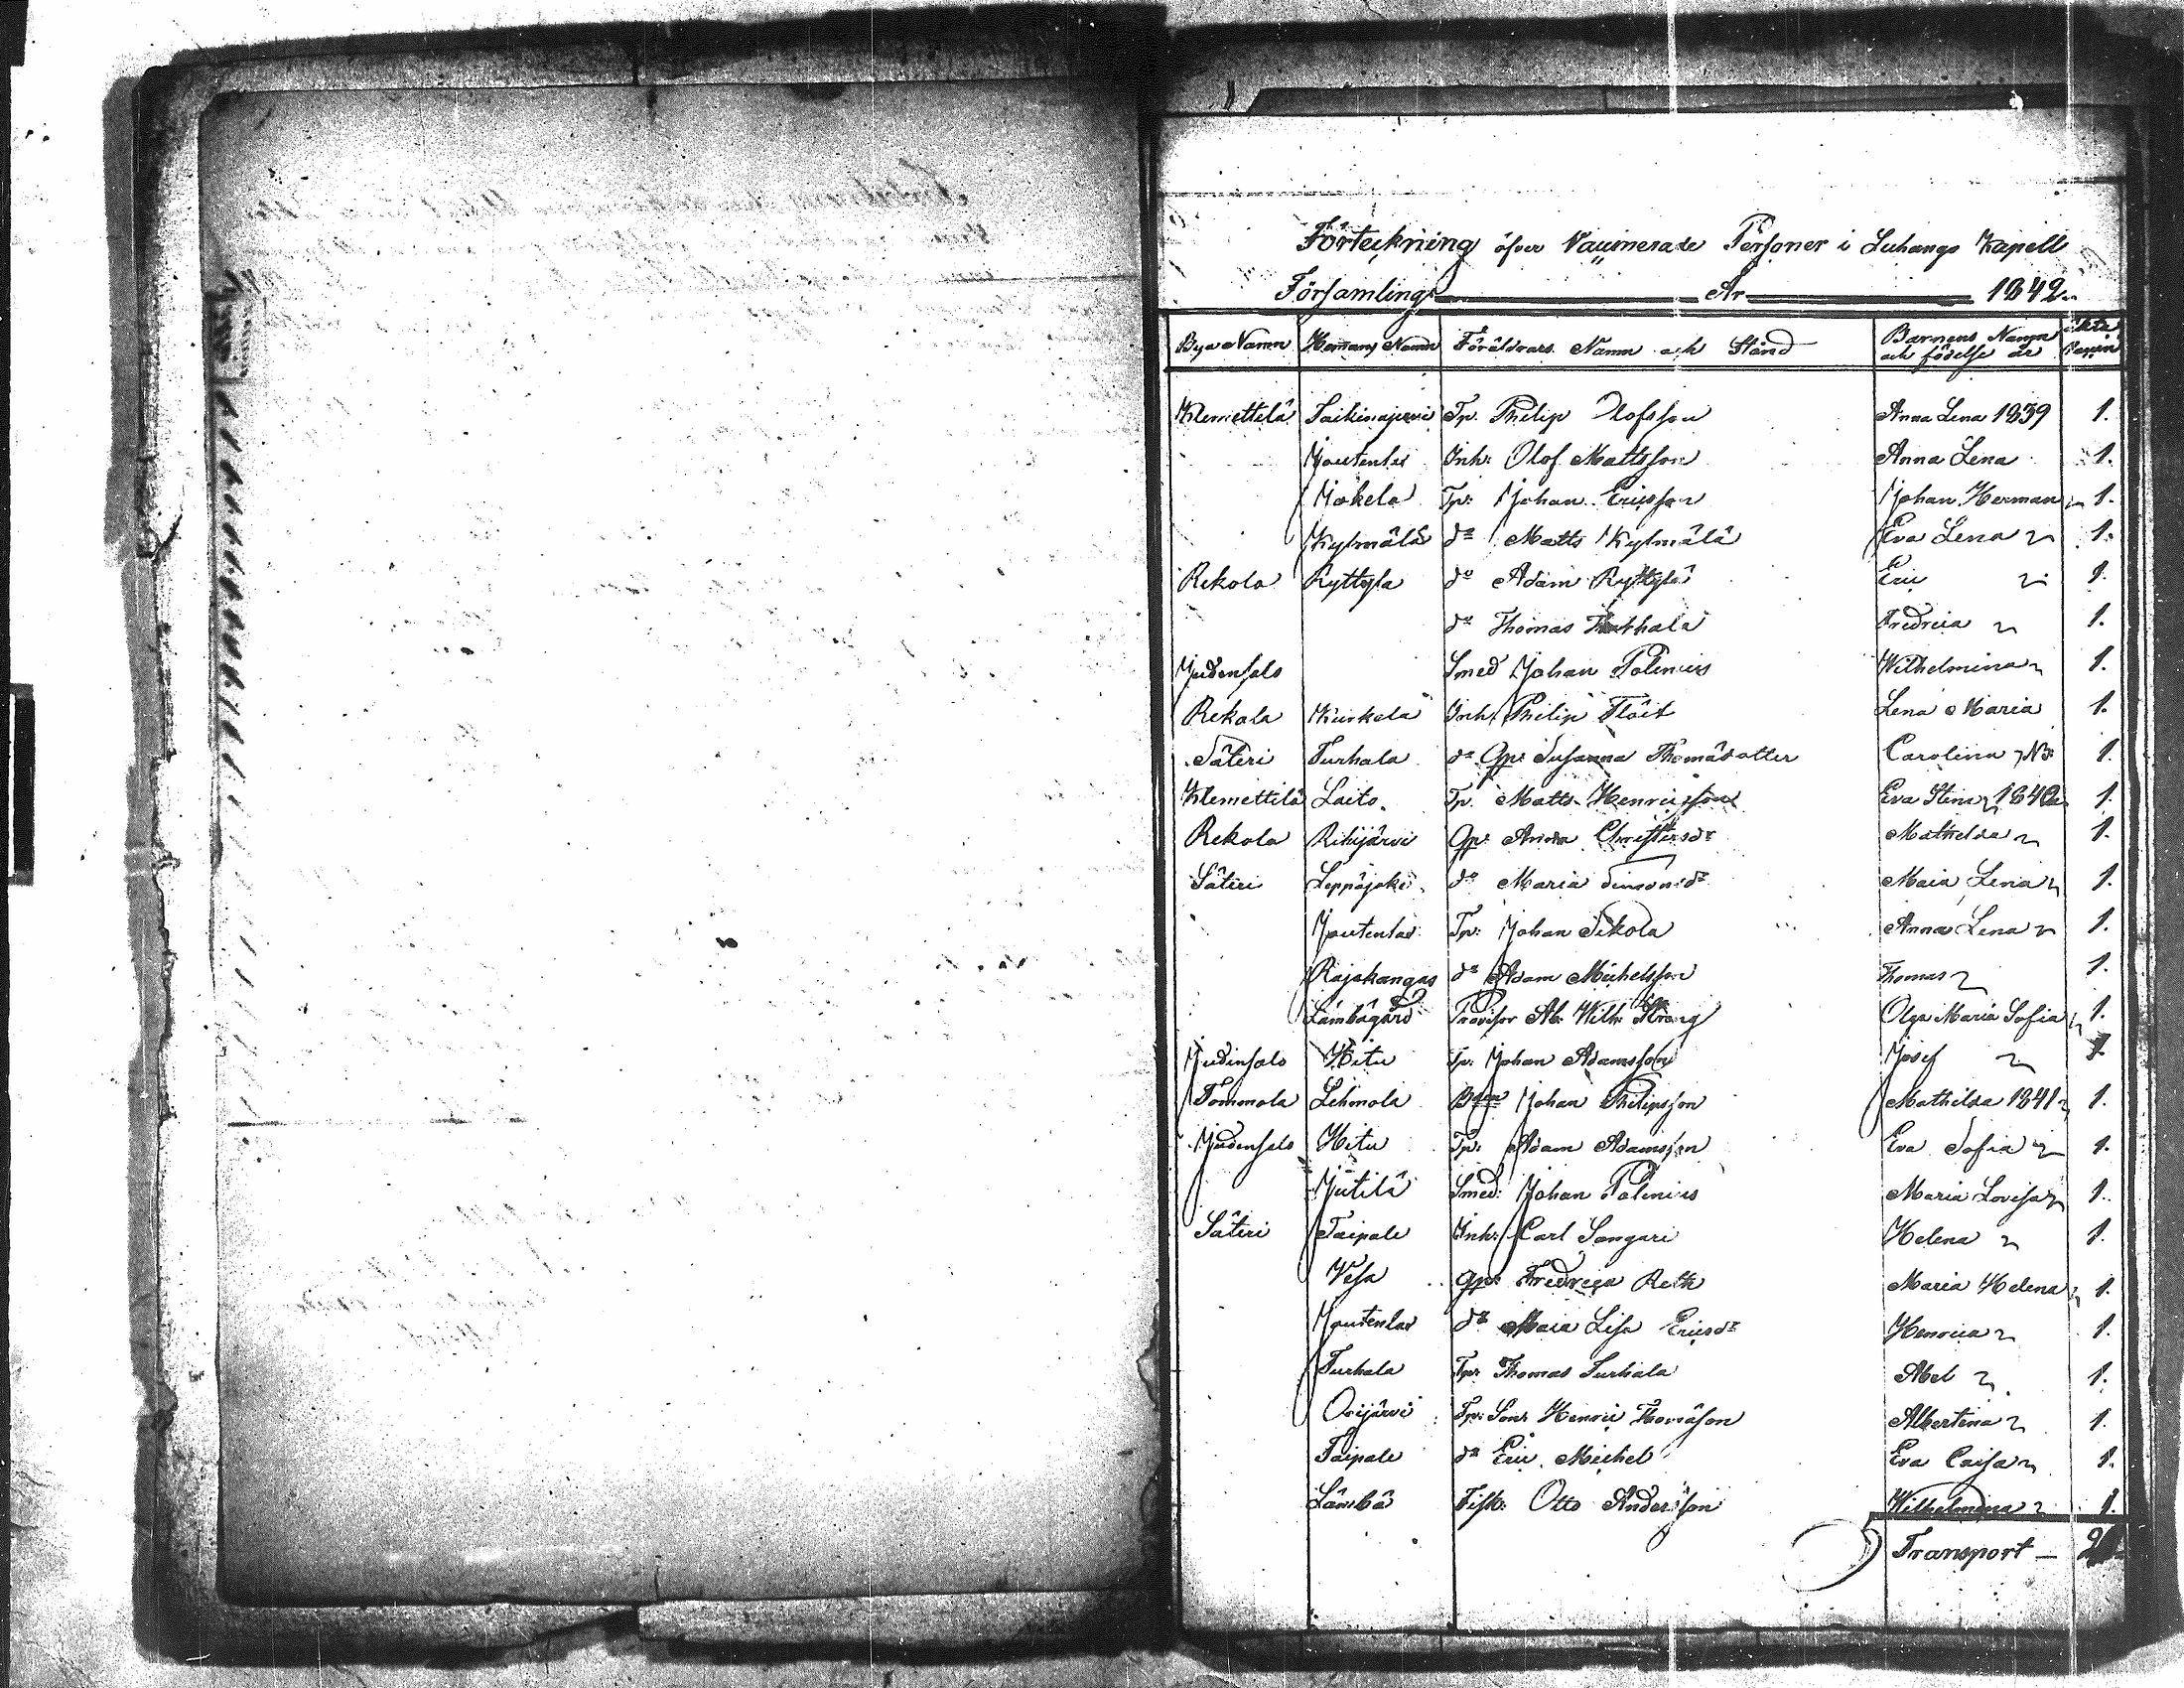 Förteckning öfver Vaccinerade Personer i Luhango Kapell
Församling År 1842
Bya Namn Hemans Namn Föräldrars Namn och Stånd Barnens Namn och födelse år äkta
Klemettilä Tp. Philip Olofsson Anna Lena 1839 1.
Joutenlas Inh: Olof Mattsson Anna Lena 1.
Mäkelä Tp: Johan Ericsson Johan Herman 1.
Kylmälä do Matts Kylmälä Eva Lena 1.
Rekola Ryttylä do Adam Ryttylä Eric 1.
do Thomas Fredrica 1.
Judinsalo Smed Johan Polenius Wilhelmina 1.
Rekola Kurkela Inh: Philip Flöit Lena Maria 1.
Säteri Turhala do Gp: Susanna Thomädotter Carolina 1.
Klemettilä Laito Tp. Matts Henricsson Eva Stina 1840 1.
Rekola Rihijärvi Gp: Anna Christersdr Mathilda 1.
Säteri Leppäjoki do Maria Simonsdr Maia Lena 1.
Joutenlas Tp: Johan Sikola Anna Lena 1.
Rajakangas do Adam Michelsson Thomas 1.
Lambägård Provisor Ab: Wilh: Olga Maria Sofia 1.
Judinsalo Hietu Tp: Johan Adamsson Josef 1.
Tommola Lehmola Bdn Johan Philipsson Mathilda 1841 1.
Judinsalo Hietu Tp: Adam Adamsson Eva Sofia 1.
Jutilä Smed: Johan Polenius Maria Lovisa 1.
Säteri Taipale Inh: Carl Sangari Helena 1.
Vesa Gp: Fredrica Reth Maria Helena 1.
Joutenlas do Maia Lisa Ericsdr Henrica 1.
Turhala Tp: Thomas Turhala Abel 1.
Orijärvi Tp: Son: Henric Thomäson Albertina 1.
Taipale do Eric Michel Eva Caisa 1.
Lämbä Fisk: Otto Andersson Wilhelmina 1.
Transport